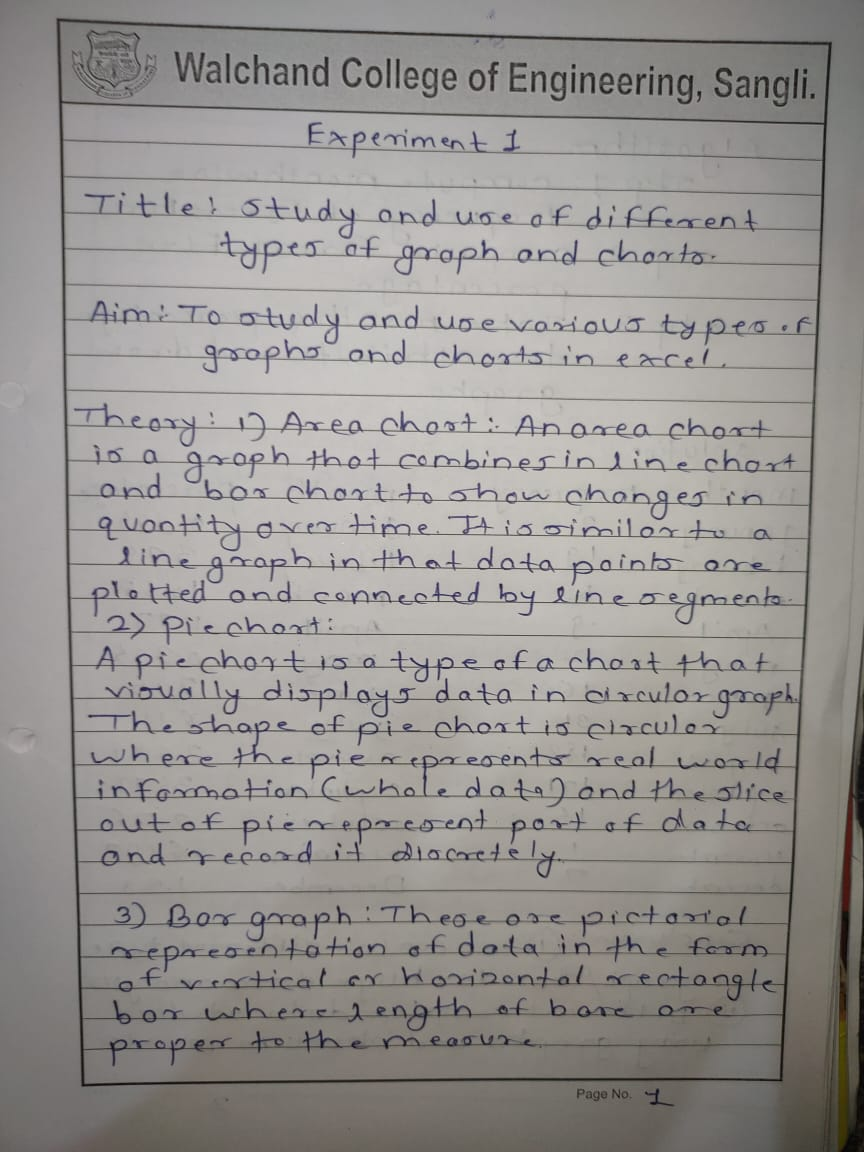 Walchand College of Engineering, Sangli.
Experiment 1
Title: Study and use of different
types of graph and charts.
Aim: To study and use various types of
graphs and charts in excel.
Theory: 1) Area Chart: An area chart
is a graph that combines in line chart
and bar chart to show changes in
quantity over time. It is similar to a
line graph in that data points are
plotted and connected by line segments.
2) Pie chart:
A pie chart is a type of a chart that
visually displays data in circular graph.
The shape of pie chart is circular
where the pie represents real world
information (whole data) and the slice
out of pie represent part of data
and record it discretely.
3) Bar graph: These are pictorial
representation of data in the form
of vertical or horizontal rectangle
bar where length of bare are
proper to the measure.
Page No. 1